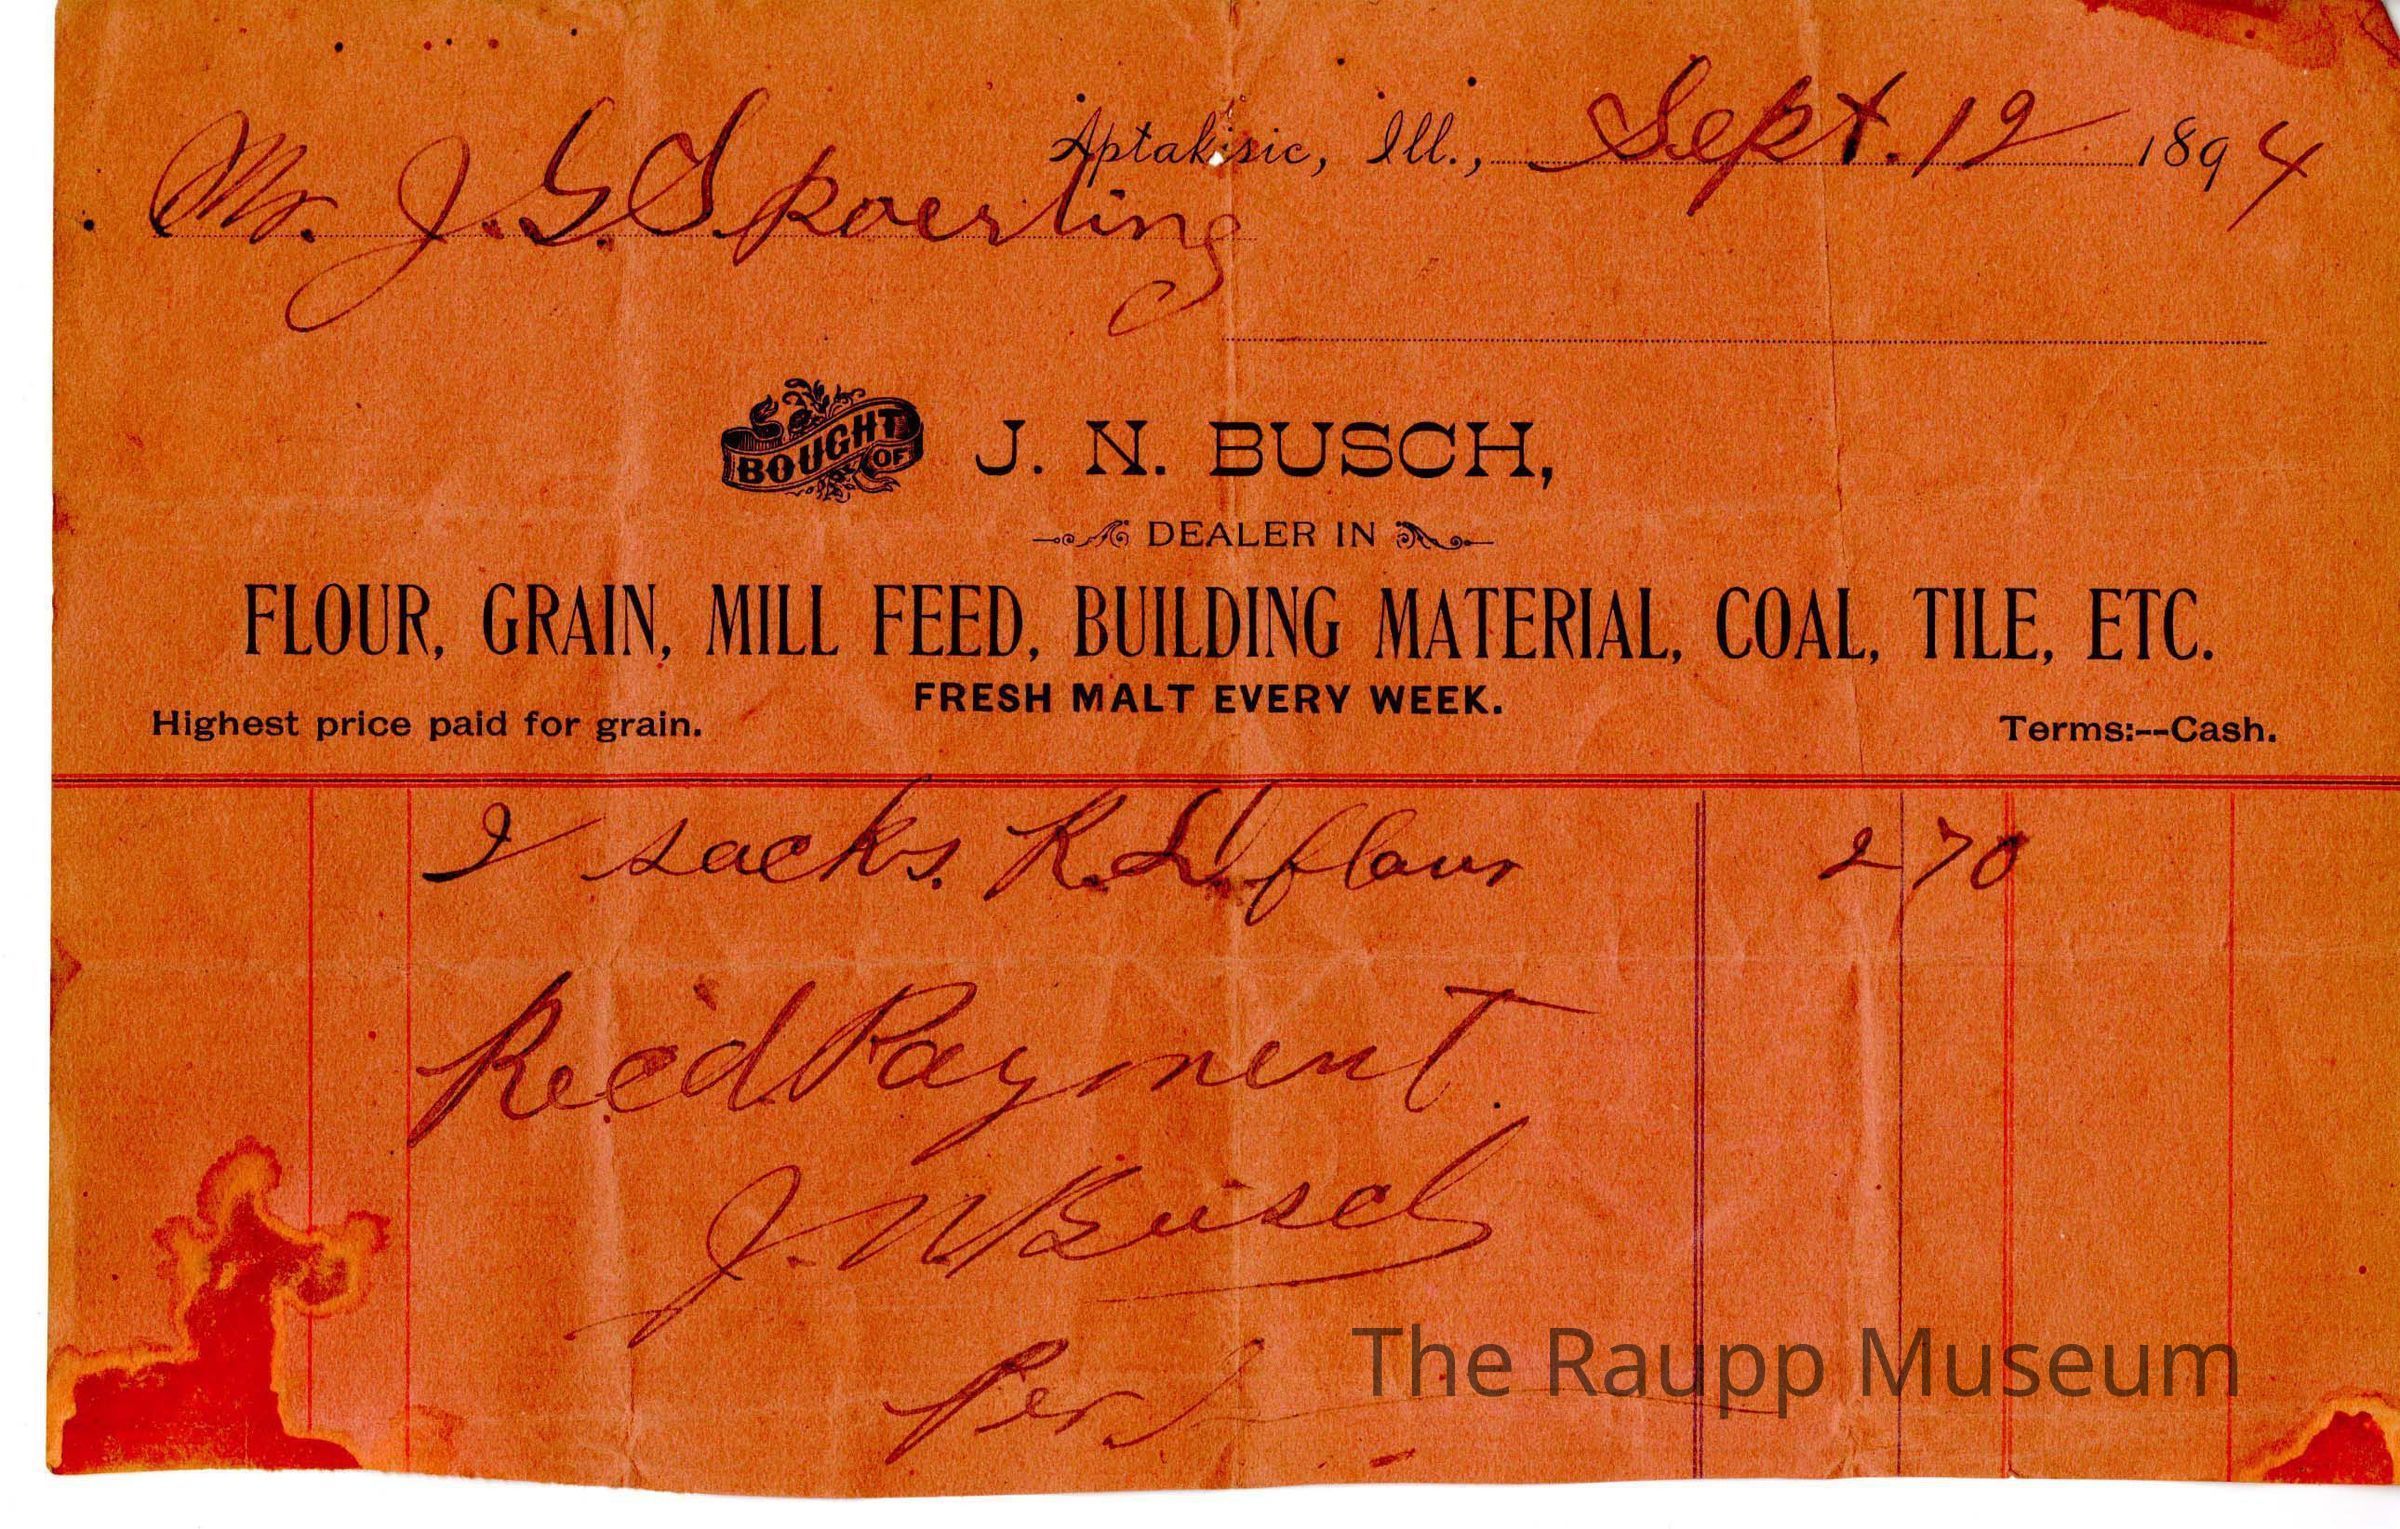 Aptakisic, Ill., Sept. 12 1894
Mr. J. G. Spoerling
BOUGHT OF J. N. BUSCH,
DEALER IN
FLOUR, GRAIN, MILL FEED, BUILDING MATERIAL, COAL, TILE, ETC.
FRESH MALT EVERY WEEK.
Highest price paid for grain. Terms:--Cash.
2 sacks. flour 2 70
Rec'd Payment.
J. N. Busch
Per
The Raupp Museum